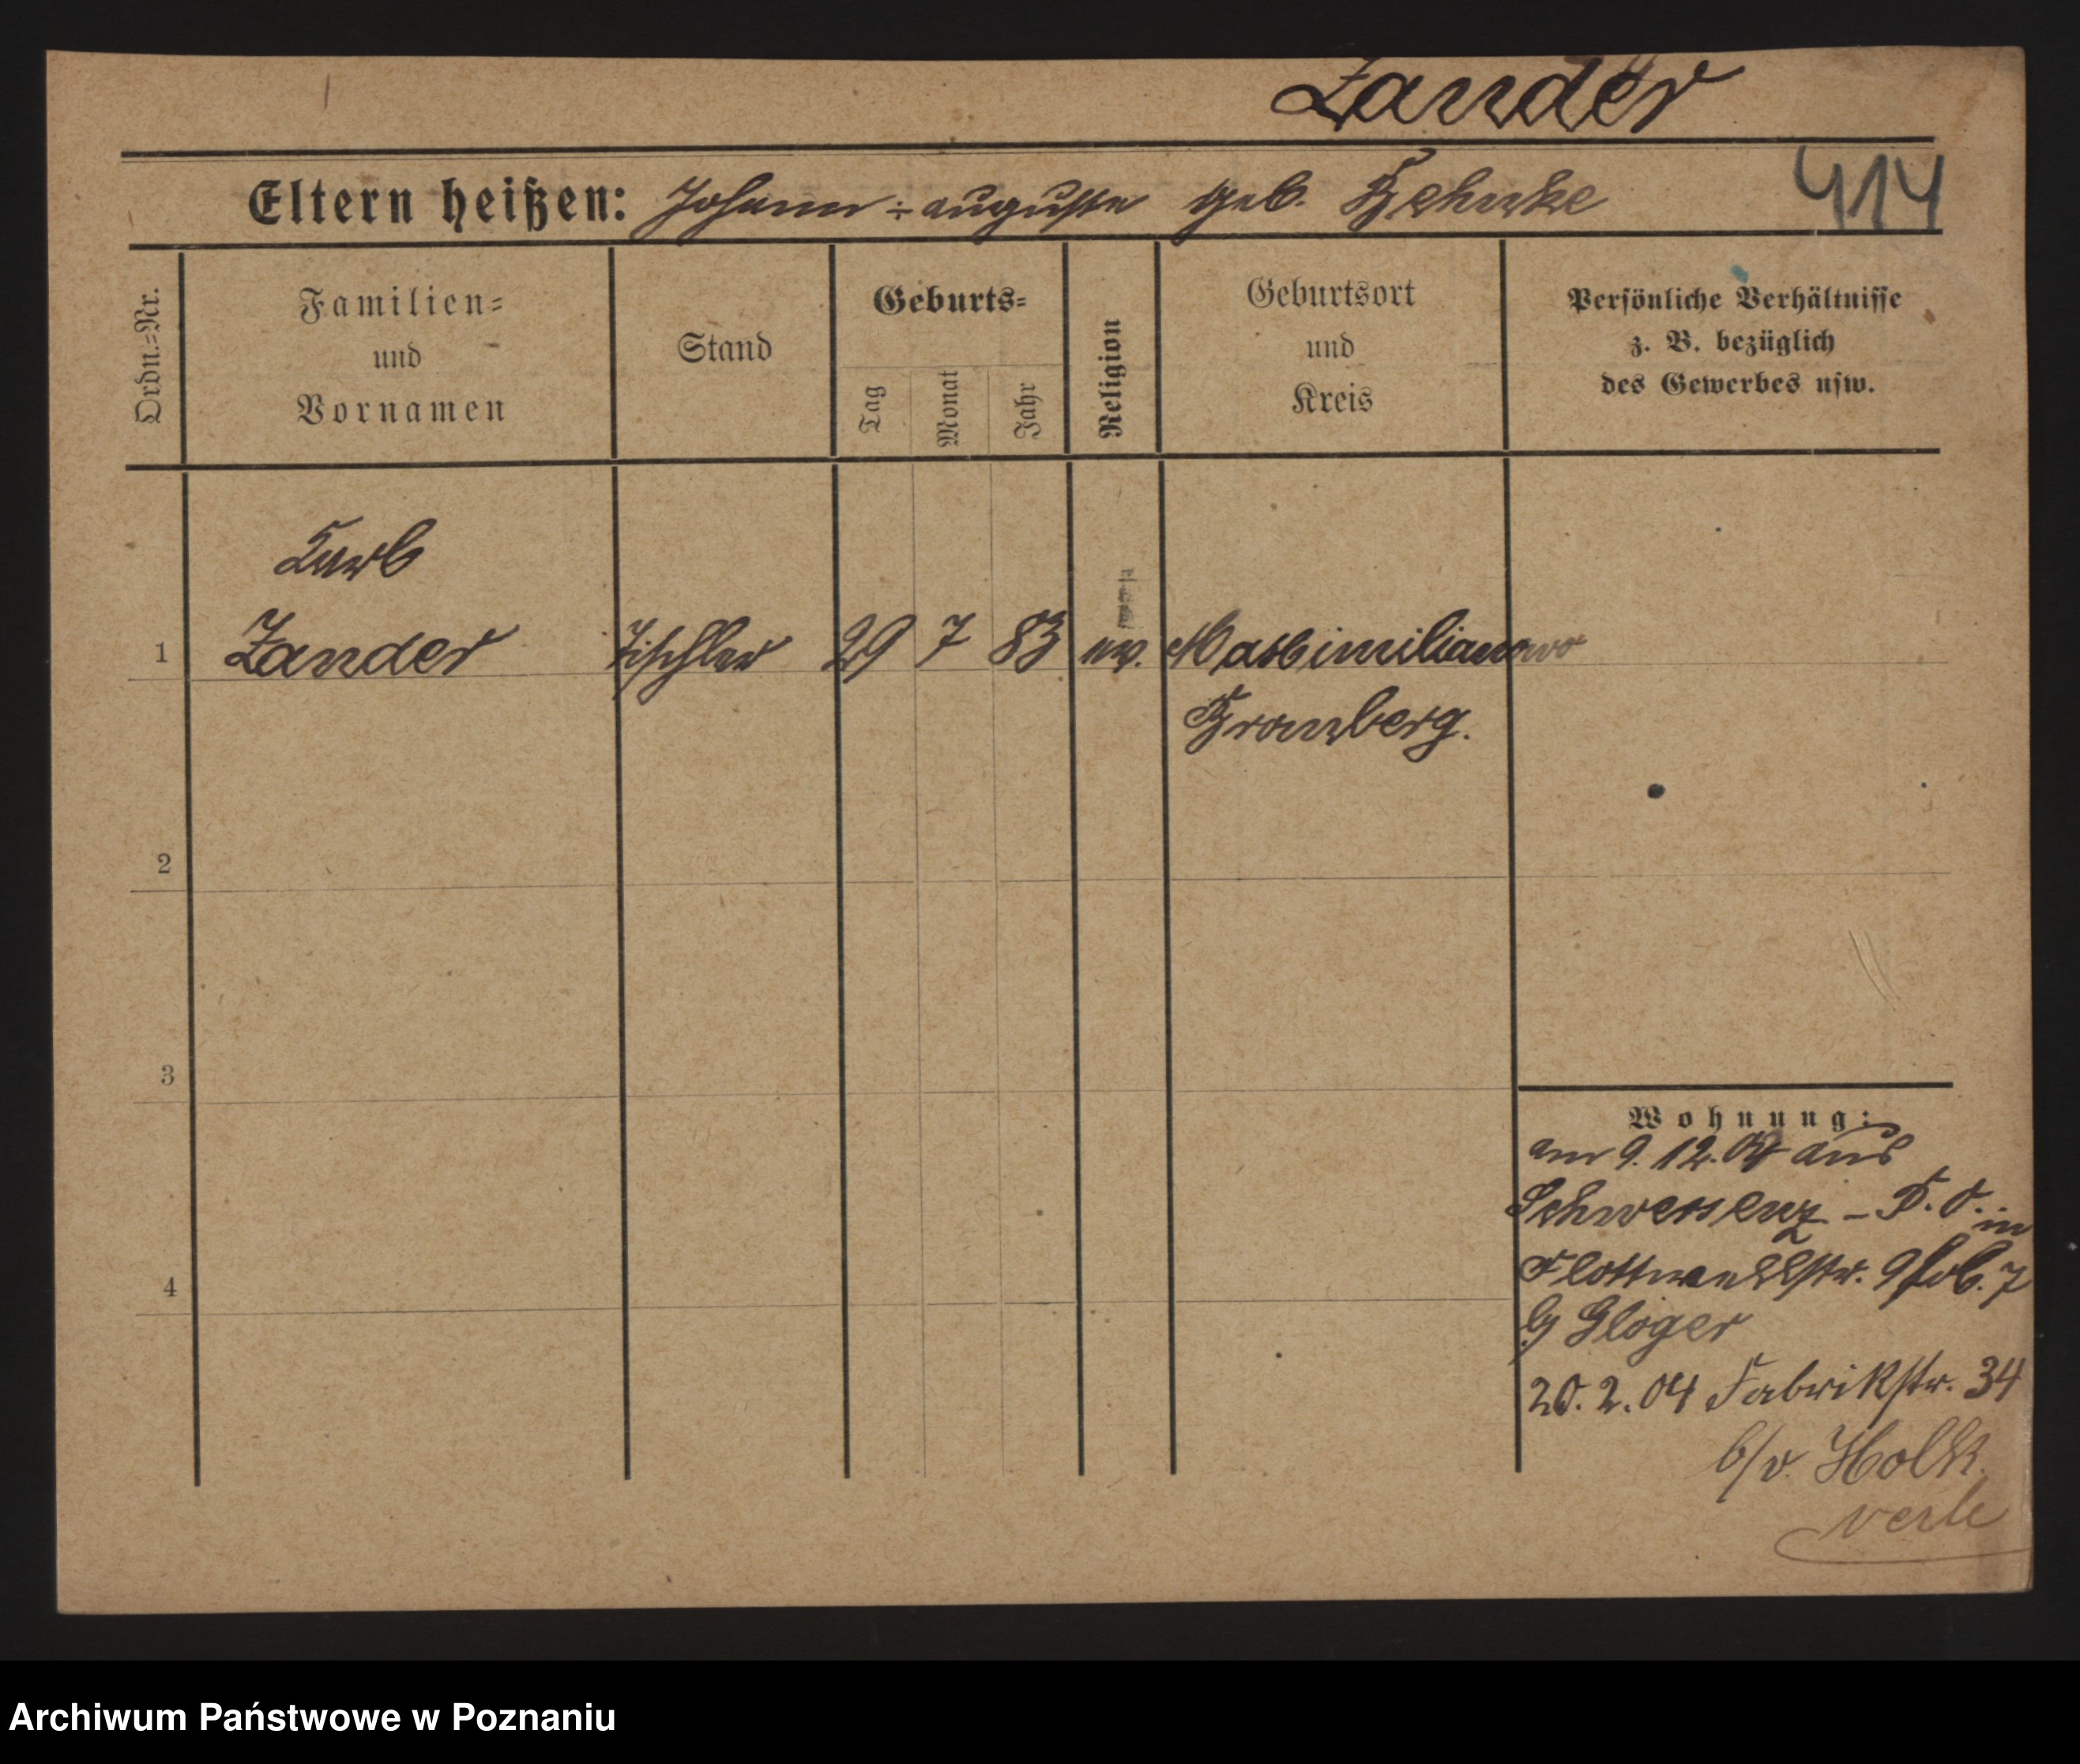 Zander
Eltern heißen: Johann ÷ auguste geb. Behnke
414
Ordn.=Nr.
Familien=
und
Vornamen
Stand
Geburts=
Tag
Monat
Jahr
Religion
Geburtsort
und
Kreis
Persönliche Verhältnisse
z. B. bezüglich
des Gewerbes usw.
Karl
1 Zander Tischler 29 7 83 ev. Maximilianowo
Bromberg.
2
3
4
Wohnung:
am 9. 12. 04 aus
Schwersenz - P. O. in
Flottwellstr. 9
Gloger
20. 2. 04 Fabrikstr. 34
b/v.
Archiwum Państwowe w Poznaniu